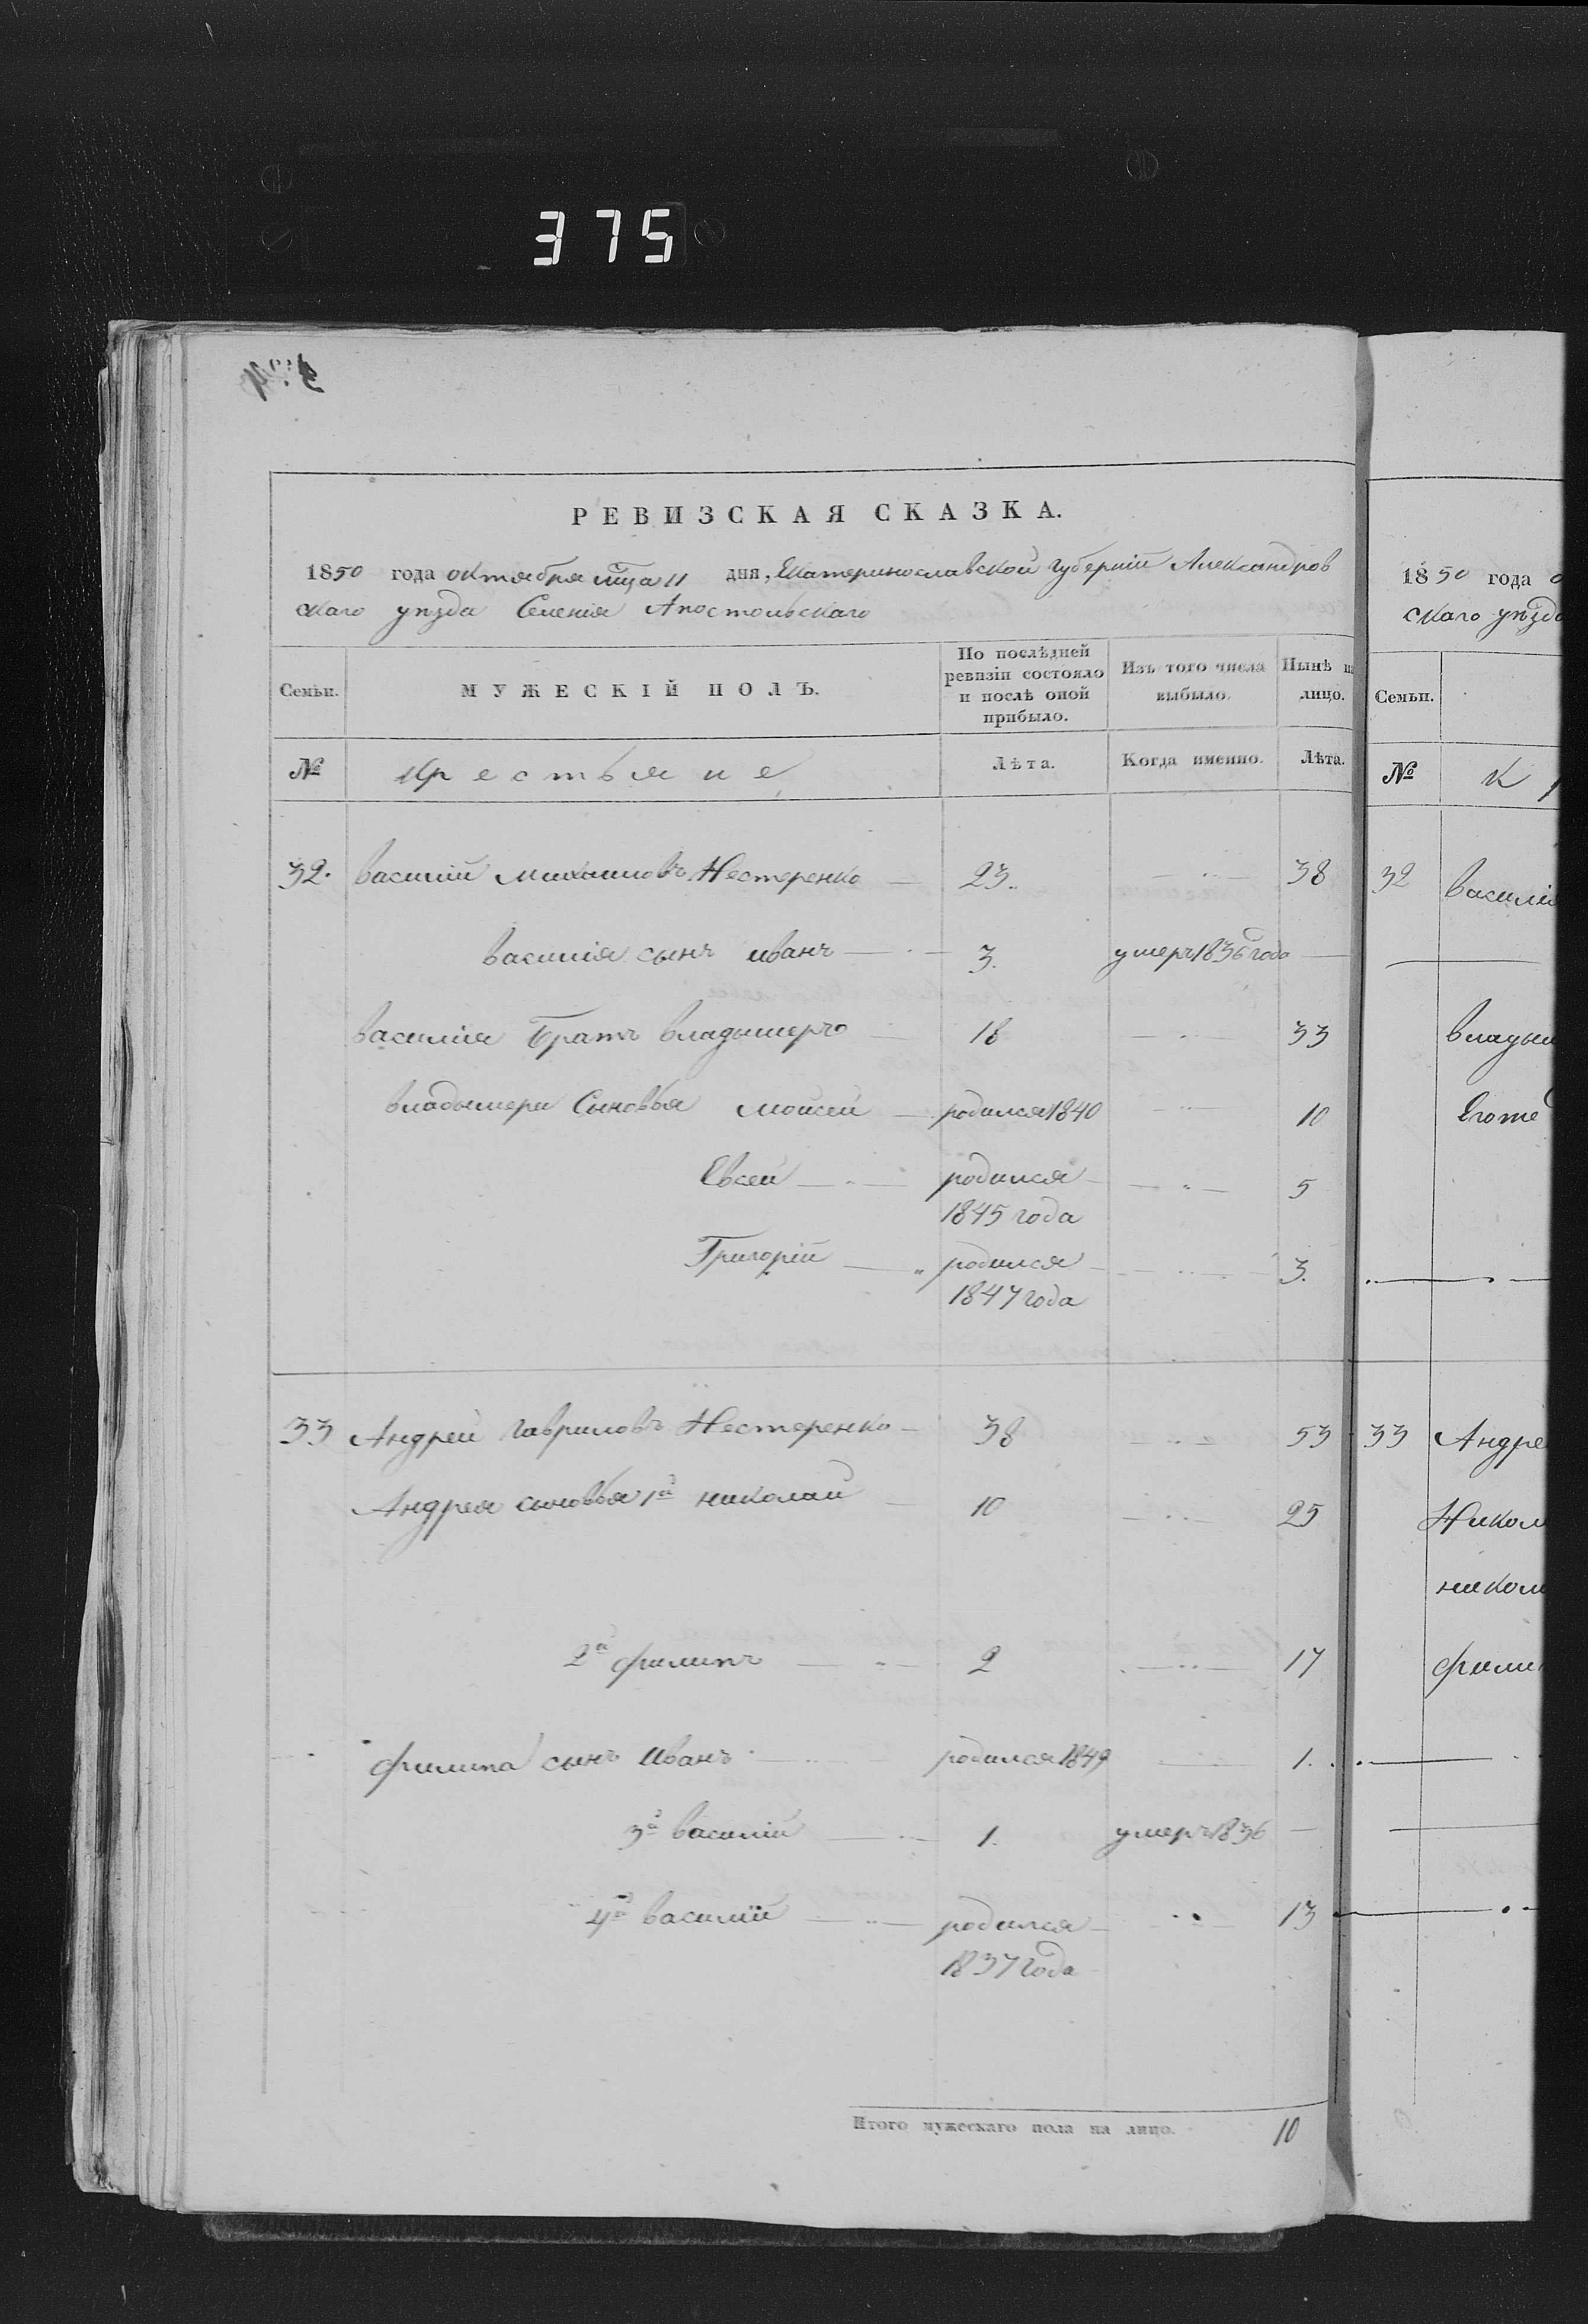 375
РЕВИЗСКАЯ СКАЗКА.
1850 года октября мца 11 дня, Екатеринославской губерніи Александров
скаго уѣзда Селенія Апостольскаго
Семьи.
МУЖЕСКІЙ ПОЛЪ.
По послѣдней ревизіи состояло и послѣ оной прибыло.
Изъ того числа выбыло.
Нынѣ на лицо.
№ Крестьяне Лѣта. Когда именно. Лѣта.
32. Василій Михаиловъ Нестеренко 23. 38
Василія сынъ иванъ 3. умеръ 1836 года
Василія Братъ владымеръ 18 33
владымера Сыновья моисей родился 1840 10
Евсей родился 5
1845 года
Григорій родился 3.
1847 года
33 Андрей Гавриловъ Нестеренко 38 53
Андрея сыновья 1й николай 10 25
2й филипъ 2 17
филипа сынъ Иванъ родился 1849 1.
3й василій 1. умеръ 1836
4й василій родился 13
1837 года
Итого мужескаго пола на лицо. 10
1850 года о
скаго уѣзда
Семьи.
№ К
32 Василія
владым
Егоже
33 Андре
Никол
никол
фили